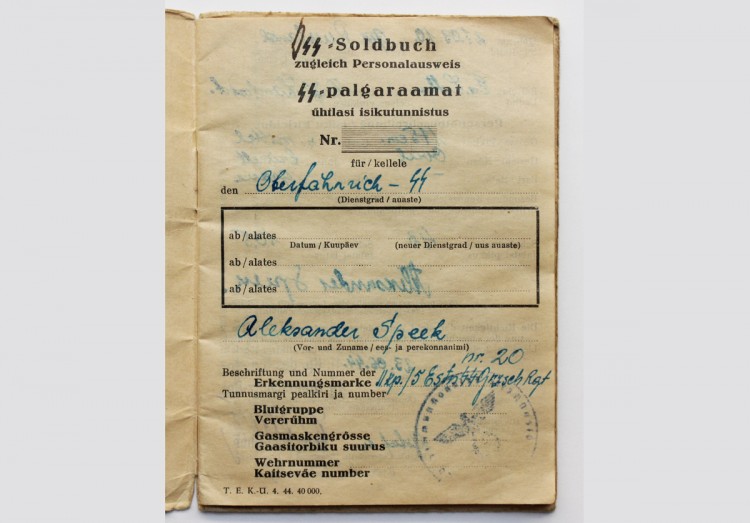 ᛋᛋ-Soldbuch
zugleich Personalausweis
ᛋᛋ-palgaraamat
ühtlasi isikutunnistus
Nr.
für / kellele
den Oberfähnrich - ᛋᛋ
(Dienstgrad / auaste)
ab / alates
Datum / Kuupäev (neuer Dienstgrad / uus auaste)
ab / alates
ab / alates
Aleksander Speek
(Vor- und Zuname / ees- ja perekonnanimi)
nr. 20
Beschriftung und Nummer der
Erkennungsmarke
Tunnusmargi pealkiri ja number
Blutgruppe
Vererühm
Gasmaskengrösse
Gaasitorbiku suurus
Wehrnummer
Kaitseväe number
T. E. K.-Ü. 4. 44. 40 000.